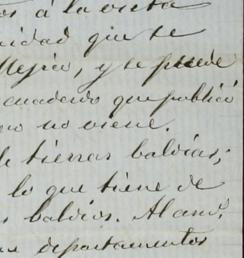 á la vista
que se
Mejico, y se puede
cuaderno que publicó
no no viene.
de tierras baldías;
lo que tiene de
baldíos. Al am.º
departamentos